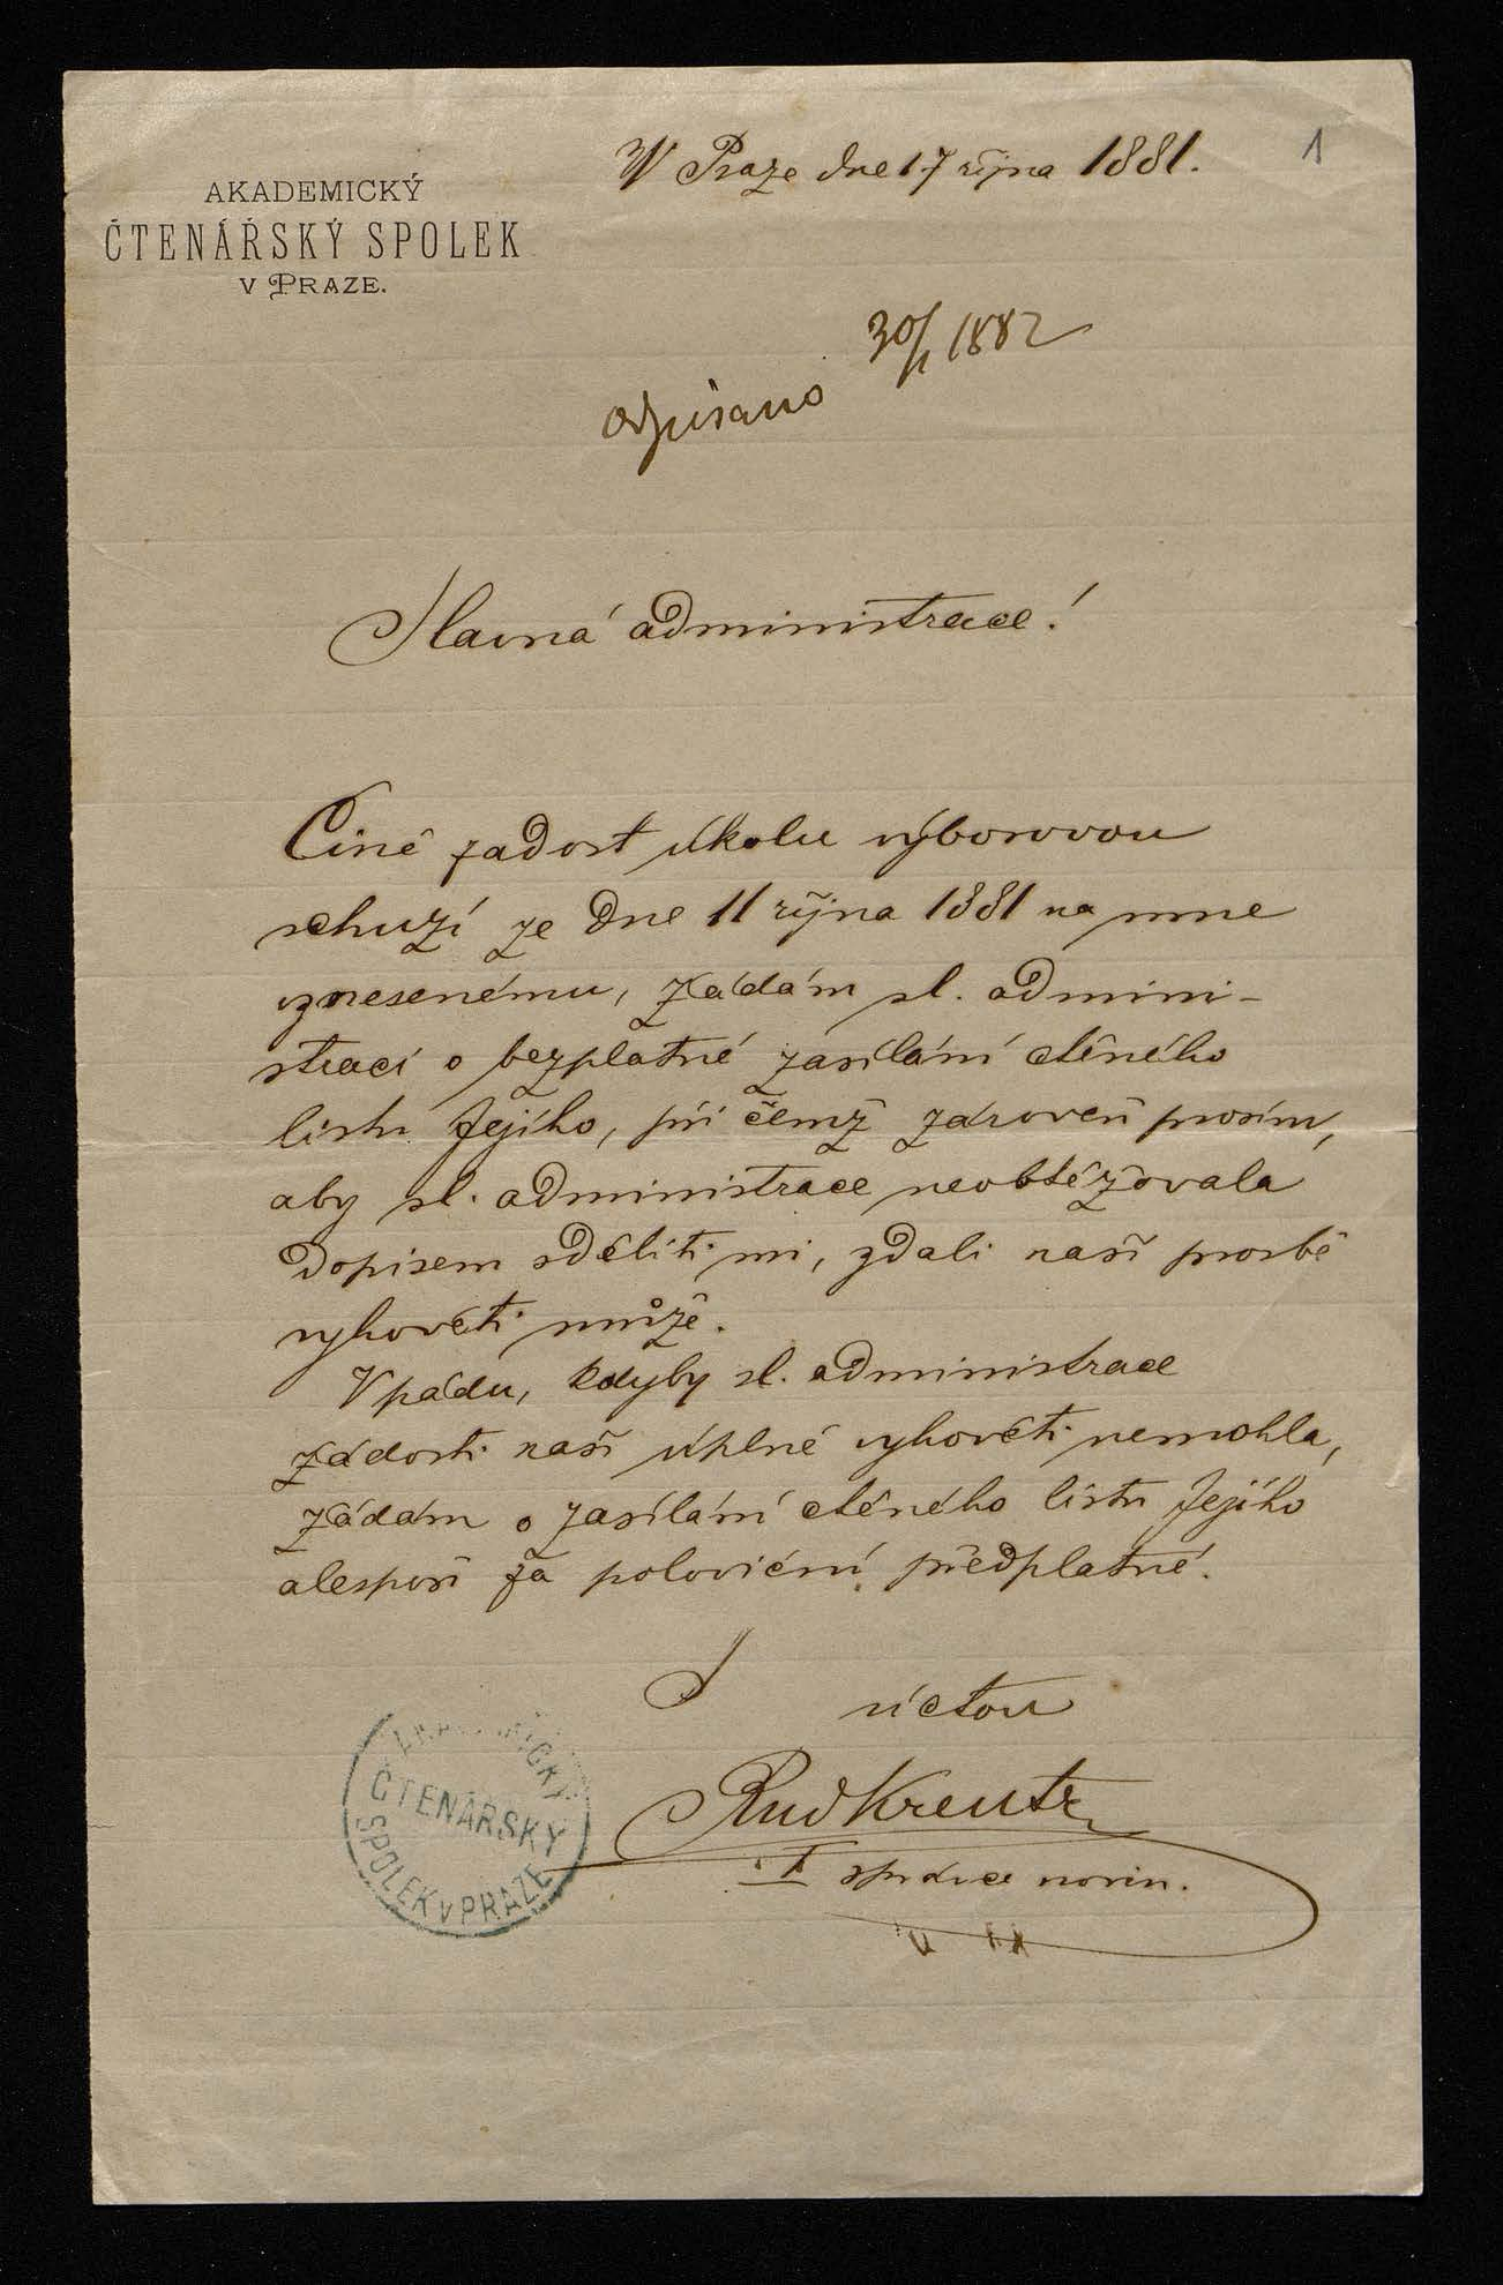 V Praze dne 17 října 1881.
1
AKADEMICKÝ
ČTENÁŘSKÝ SPOLEK
V PRAZE.
30/1 1882
odpisano
Slavná administrace!
Čině zadost úkolu výborovou
schuzí ze dne 11 října 1881 na mne
vznesenému, žádám sl. admini-
straci o bezplatné zasílání ctěného
listu Jejího, při čemž zároveň prosím,
aby sl. administrace neobtěžovala
dopisem sděliti mi, zdali naší prosbě
vyhověti může.
V pádu, kdyby sl. administrace
žádosti naší úplně vyhověti nemohla,
žádám o zasílání ctěného listu Jejího
alespoň za poloviční předplatné.
S úctou
Rud Kreutz
I správce novin.
AKADEMICKÝ
ČTENÁŘSKÝ
SPOLEK V PRAZE